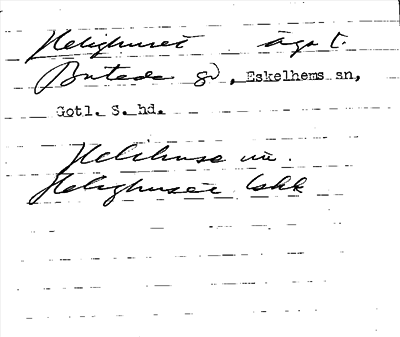 Helighuset äga t.
Butede gd, Eskelhems sn,
Gotl. S. hd.
Helihuse
Helighuset